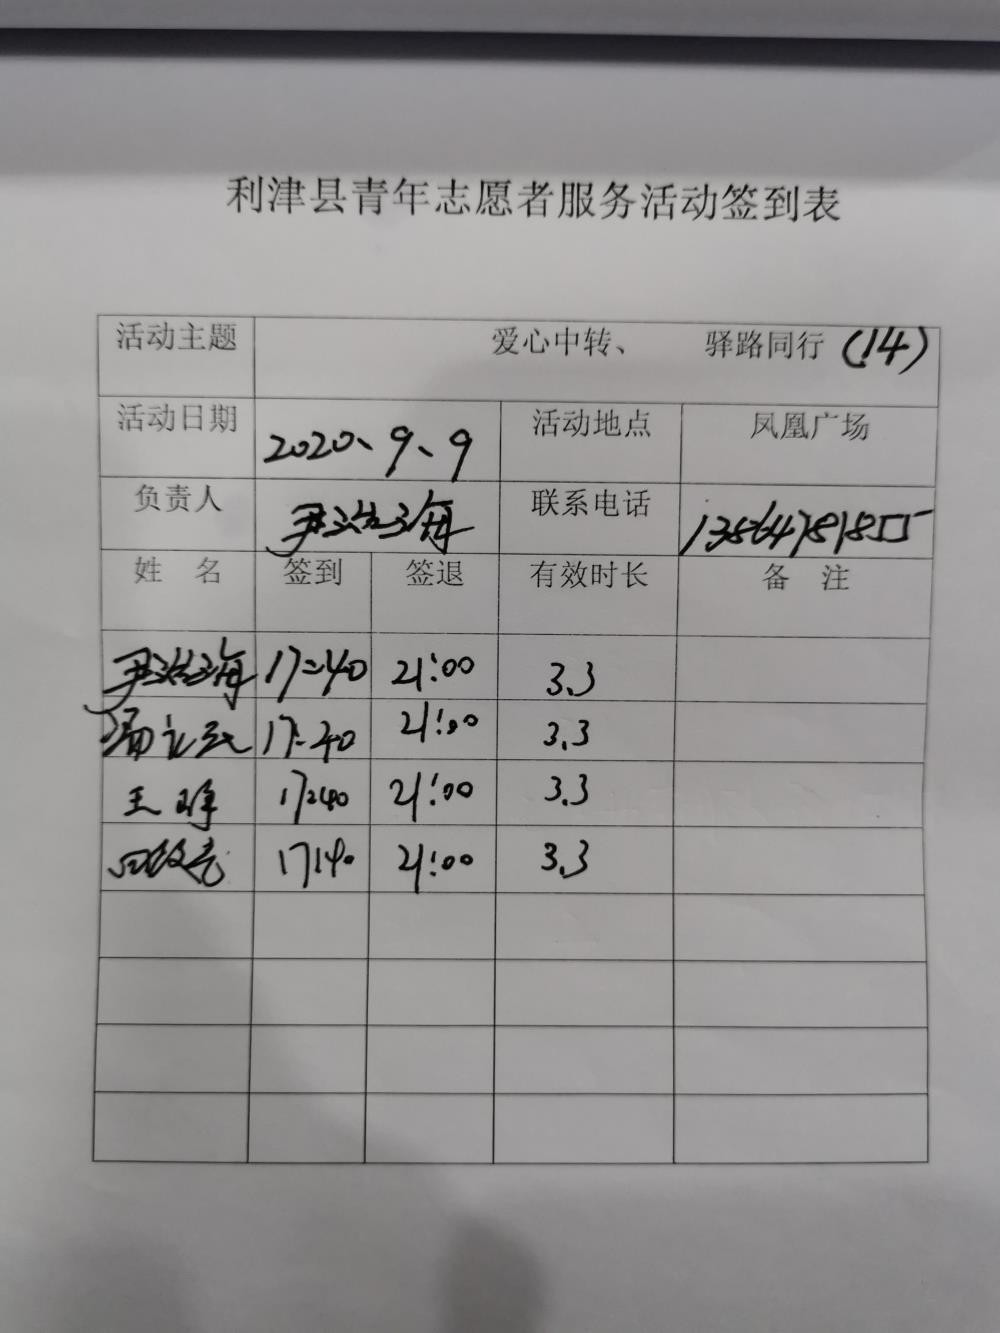 利津县青年志愿者服务活动签到表
活动主题 爱心中转、 驿路同行 (14)
活动日期 2020、9、9 活动地点 凤凰广场
负责人 尹浩海 联系电话 13864781855
姓 名 签到 签退 有效时长 备 注
尹浩海 17:40 21:00 3.3
17:40 21:00 3.3
王 17:40 21:00 3.3
17:40 21:00 3.3